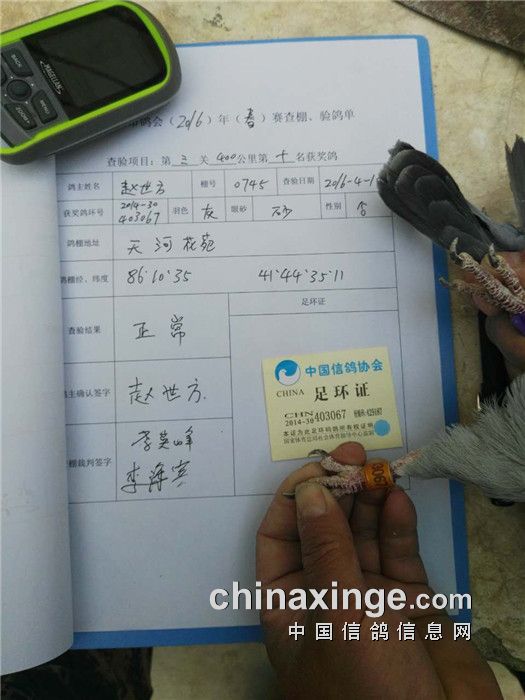 MAGELLAN
BACK
MENU
ZOOM
鸽会(2016)年(春)赛查棚、验鸽单
查验项目:第 三 关 400公里第 十 名获奖鸽
鸽主姓名 赵世方 棚号 0745 查验日期 2016-4-1
获奖鸽环号 2014-30 403067 羽色 灰 眼砂 砂 性别
鸽棚地址 天河花苑
鸽棚经、纬度 86°10′35 41°44′35·11
足环证
查验结果 正常
主确认签字 赵世方
棚裁判签字 李英峰
李海宾
中国信鸽协会
CHINA 足环证
CHN
2014-30 403067
本证为此足环鸽所有权证明
国家体育总局社会体育指导中心监制
chinaxinge.com
中国信鸽信息网